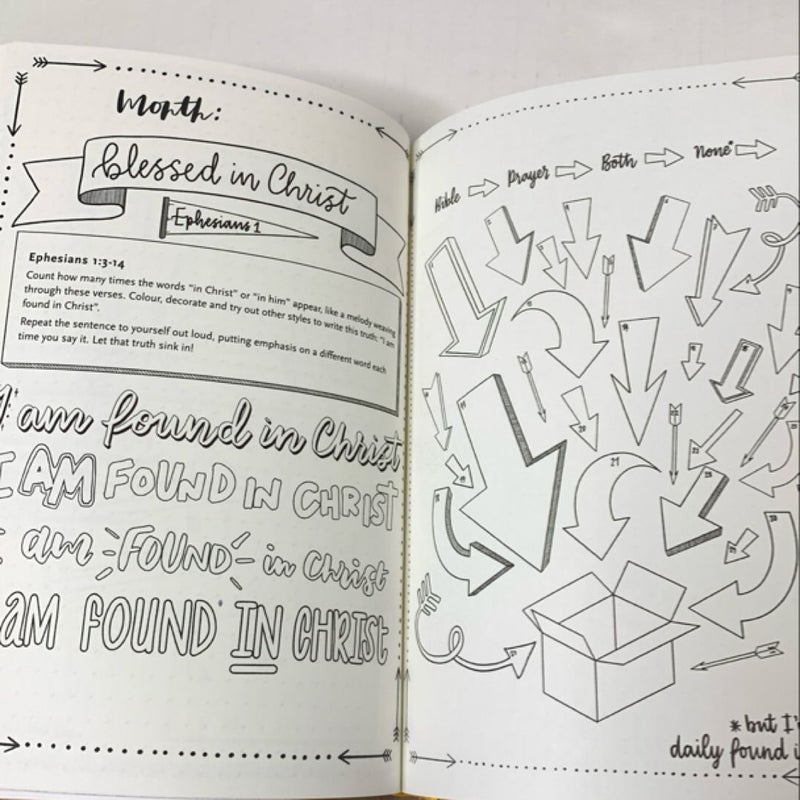 Month:
blessed in Christ
Ephesians 1
Ephesians 1:3-14
Count how many times the words "in Christ" or "in him" appear, like a melody weaving
through these verses. Colour, decorate and try out other styles to write this truth: "I am
found in Christ".
Repeat the sentence to yourself out loud, putting emphasis on a different word each
time you say it. Let that truth sink in!
I am found in Christ
I AM FOUND IN CHRIST
I am FOUND in Christ
AM FOUND IN CHRIST
Bible Prayer Both None*
20
21
*but I'
daily found i